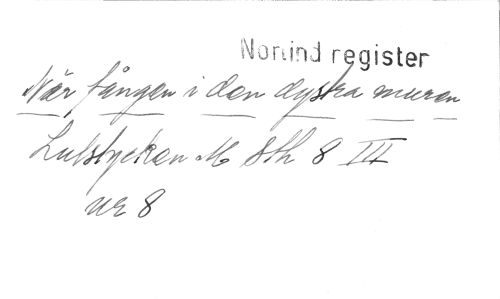 Norlind register
När fången i den dystra muren
Lutstycken M Sth 8 III
nr 8